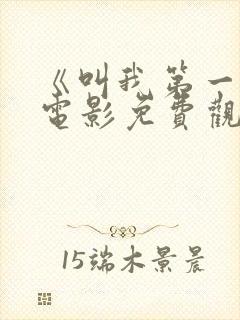 《叫我第一
電影免費觀
15端木景晨